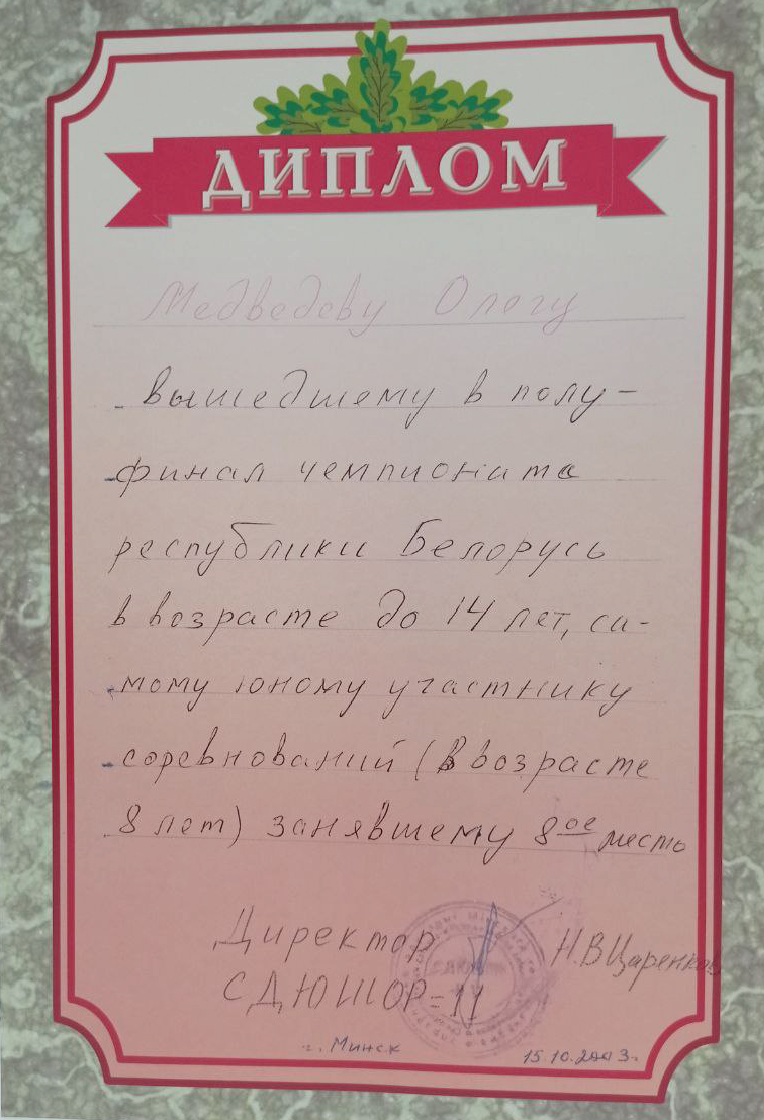 ДИПЛОМ
Медведеву Олегу
вышедшему в полу-
финал чемпионата
республики Белорусь
в возрасте до 14 лет, са-
мому юному участнику
соревнований (в возрасте
8 лет) занявшему 8ое место
Директор Н.В Царенков
СДЮШОР-11
г. Минск 15.10.2003г.